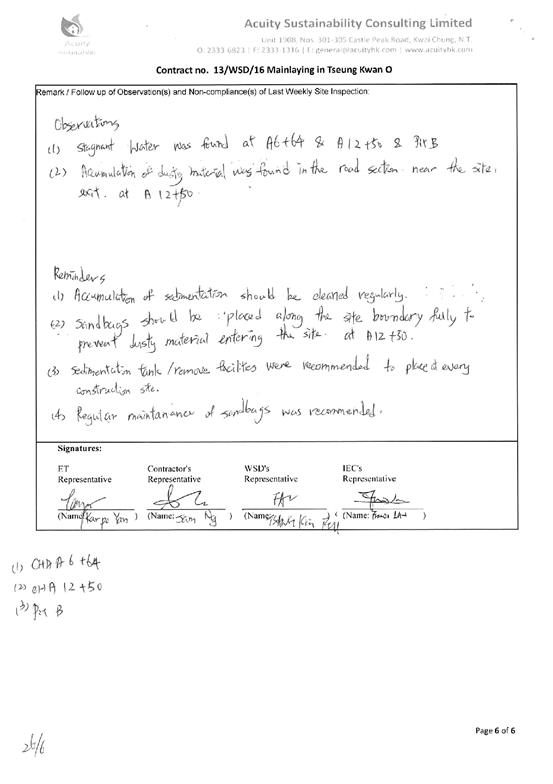 Acuity Sustainability Consulting Limited
Unit 1908, Nos. 301-305 Castle Peak Road, Kwai Chung, N.T.
O: 2333 6823 | F: 2333-1316 | E: general@acuityhk.com | www.acuityhk.com
Acuity
Contract no. 13/WSD/16 Mainlaying in Tseung Kwan O
Remark / Follow up of Observation(s) and Non-compliance(s) of Last Weekly Site Inspection:
Observations
(1) Stagnant Water was found at A6+64 & A12+50 & Pit B
(2) Accumulation of dusty material was found in the road section near the site.
exit. at A 12+50.
Reminders
(1) Accumulation of sedimentation should be cleaned regularly.
(2) Sandbags should be placed along the site boundary fully to
prevent dusty material entering the site. at A12+50.
(3) Sedimentation tank /remove facilities were recommended to place at every
construction site.
(4) Regular maintanance of sandbags was recommended.
Signatures:
ET Contractor's WSD's IEC's
Representative Representative Representative Representative
(Name: Yan ) (Name: Sam Ng ) (Name: Kin (Name: LAU )
(1) CHA A6+64
(2) CHA 12+50
(3) Pit B
Page 6 of 6
26/6